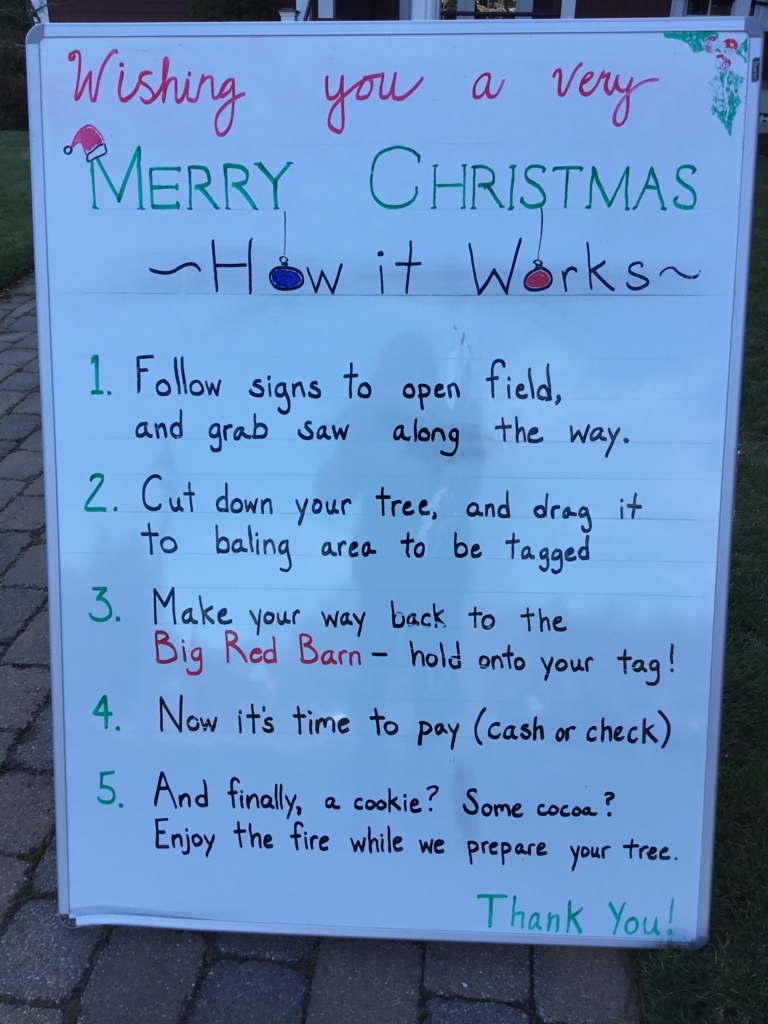 Wishing you a very
MERRY CHRISTMAS
~How it Works~
1. Follow signs to open field,
and grab saw along the way.
2. Cut down your tree, and drag it
to baling area to be tagged
3. Make your way back to the
Big Red Barn - hold onto your tag!
4. Now it's time to pay (cash or check)
5. And finally, a cookie? Some cocoa?
Enjoy the fire while we prepare your tree.
Thank You!